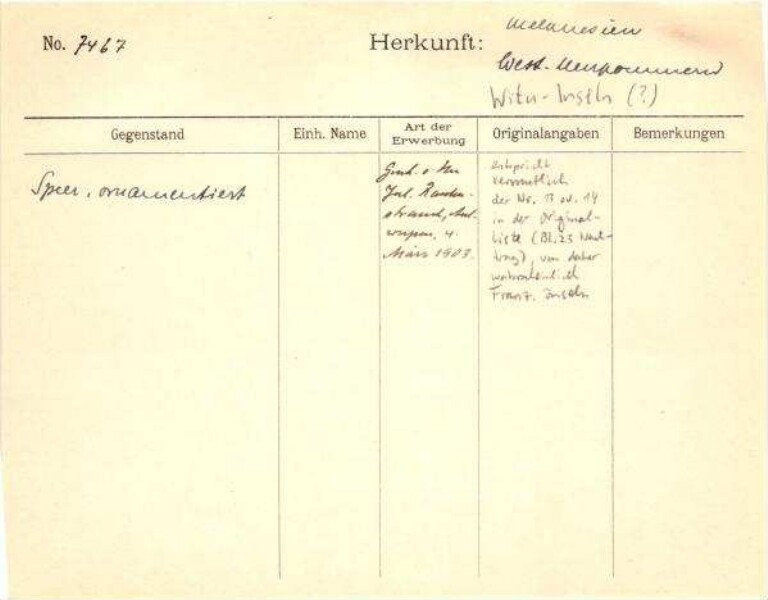 No. 7467
Herkunft: Melanesien
West-Neupommern
Witu-Inseln (?)
Gegenstand
Einh. Name
Art der
Erwerbung
Originalangaben
Bemerkungen
Speer, ornamentiert
Gesch. v. Hrn
Jul.
strand, Ant-
werpen, 4.
März 1903.
entspricht
vermutlich
der Nr. 13 od. 14
in der Original-
liste (Bl. 23 Nach-
trag), von daher
wahrscheinlich
Franz. Inseln